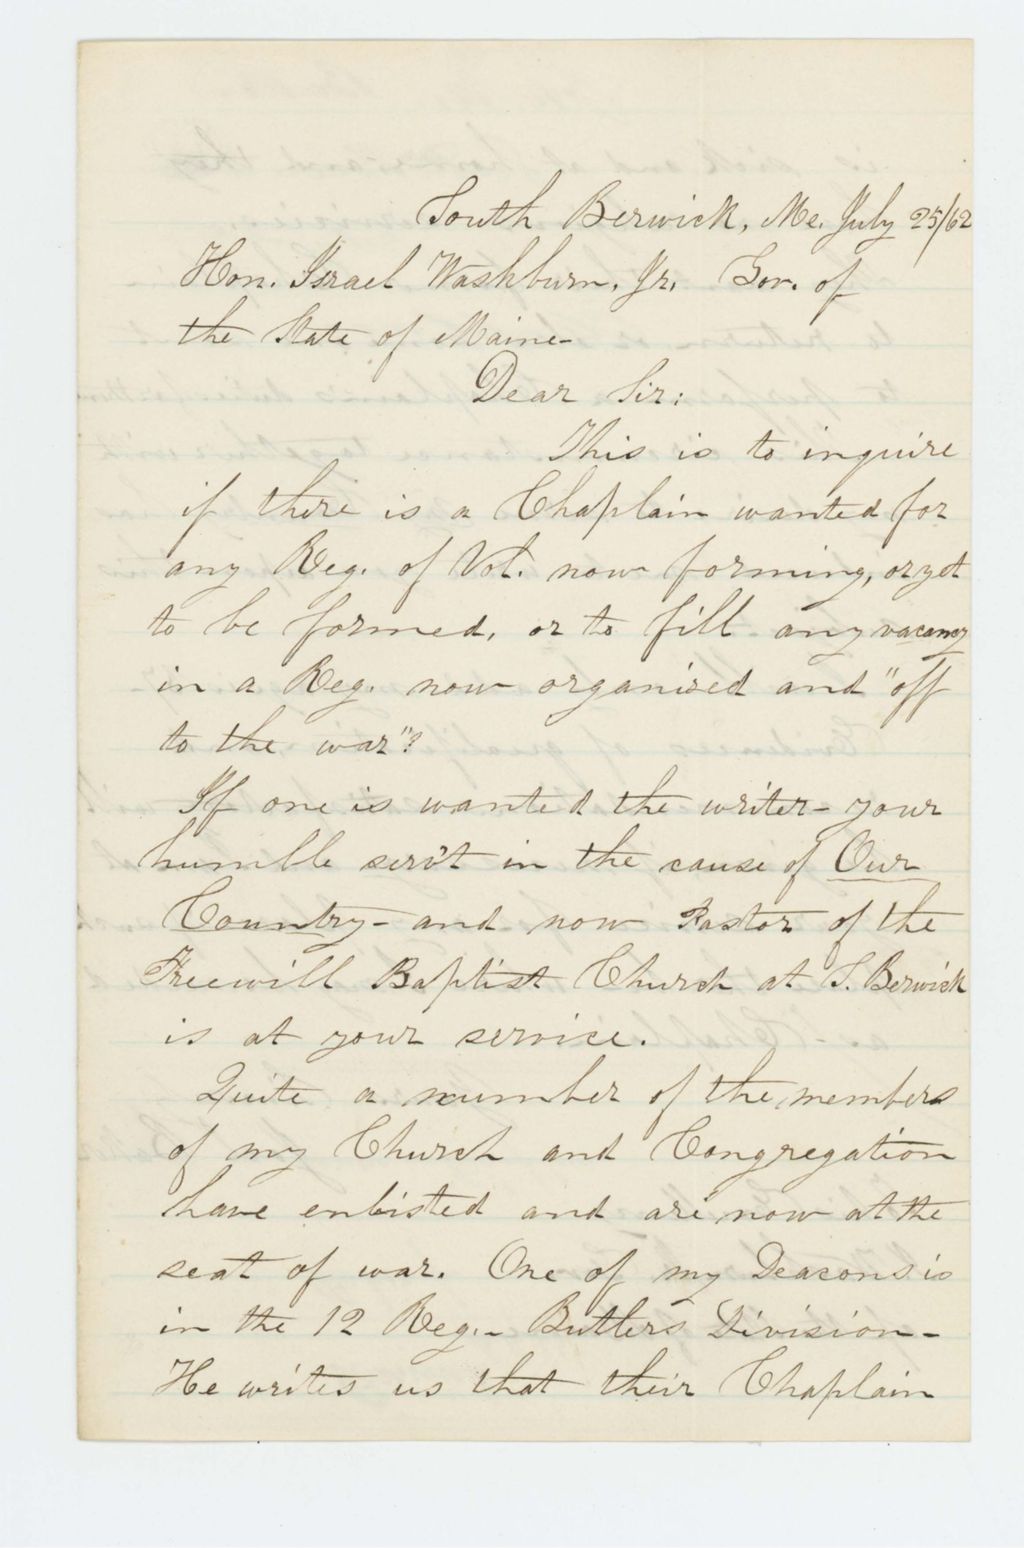 South Berwick, Me. July 25/62
Hon. Israel Washburn, Jr. Gov. of
the State of Maine-
Dear Sir:
This is to inquire
if there is a Chaplain wanted for
any Reg. of Vol. now forming, or yet
to be formed, or to fill any vacancy
in a Reg. now organized and "off
to the war"?
If one is wanted the writer - your
humble serv't in the cause of Our
Country - and now Pastor of the
Freewill Baptist Church at S. Berwick
is at your service.
Quite a number of the members
of my Church and Congregation
have enlisted and are now at the
seat of war. One of my Deacons is
in the 12 Reg. - Butlers Division -
He writes us that their Chaplain